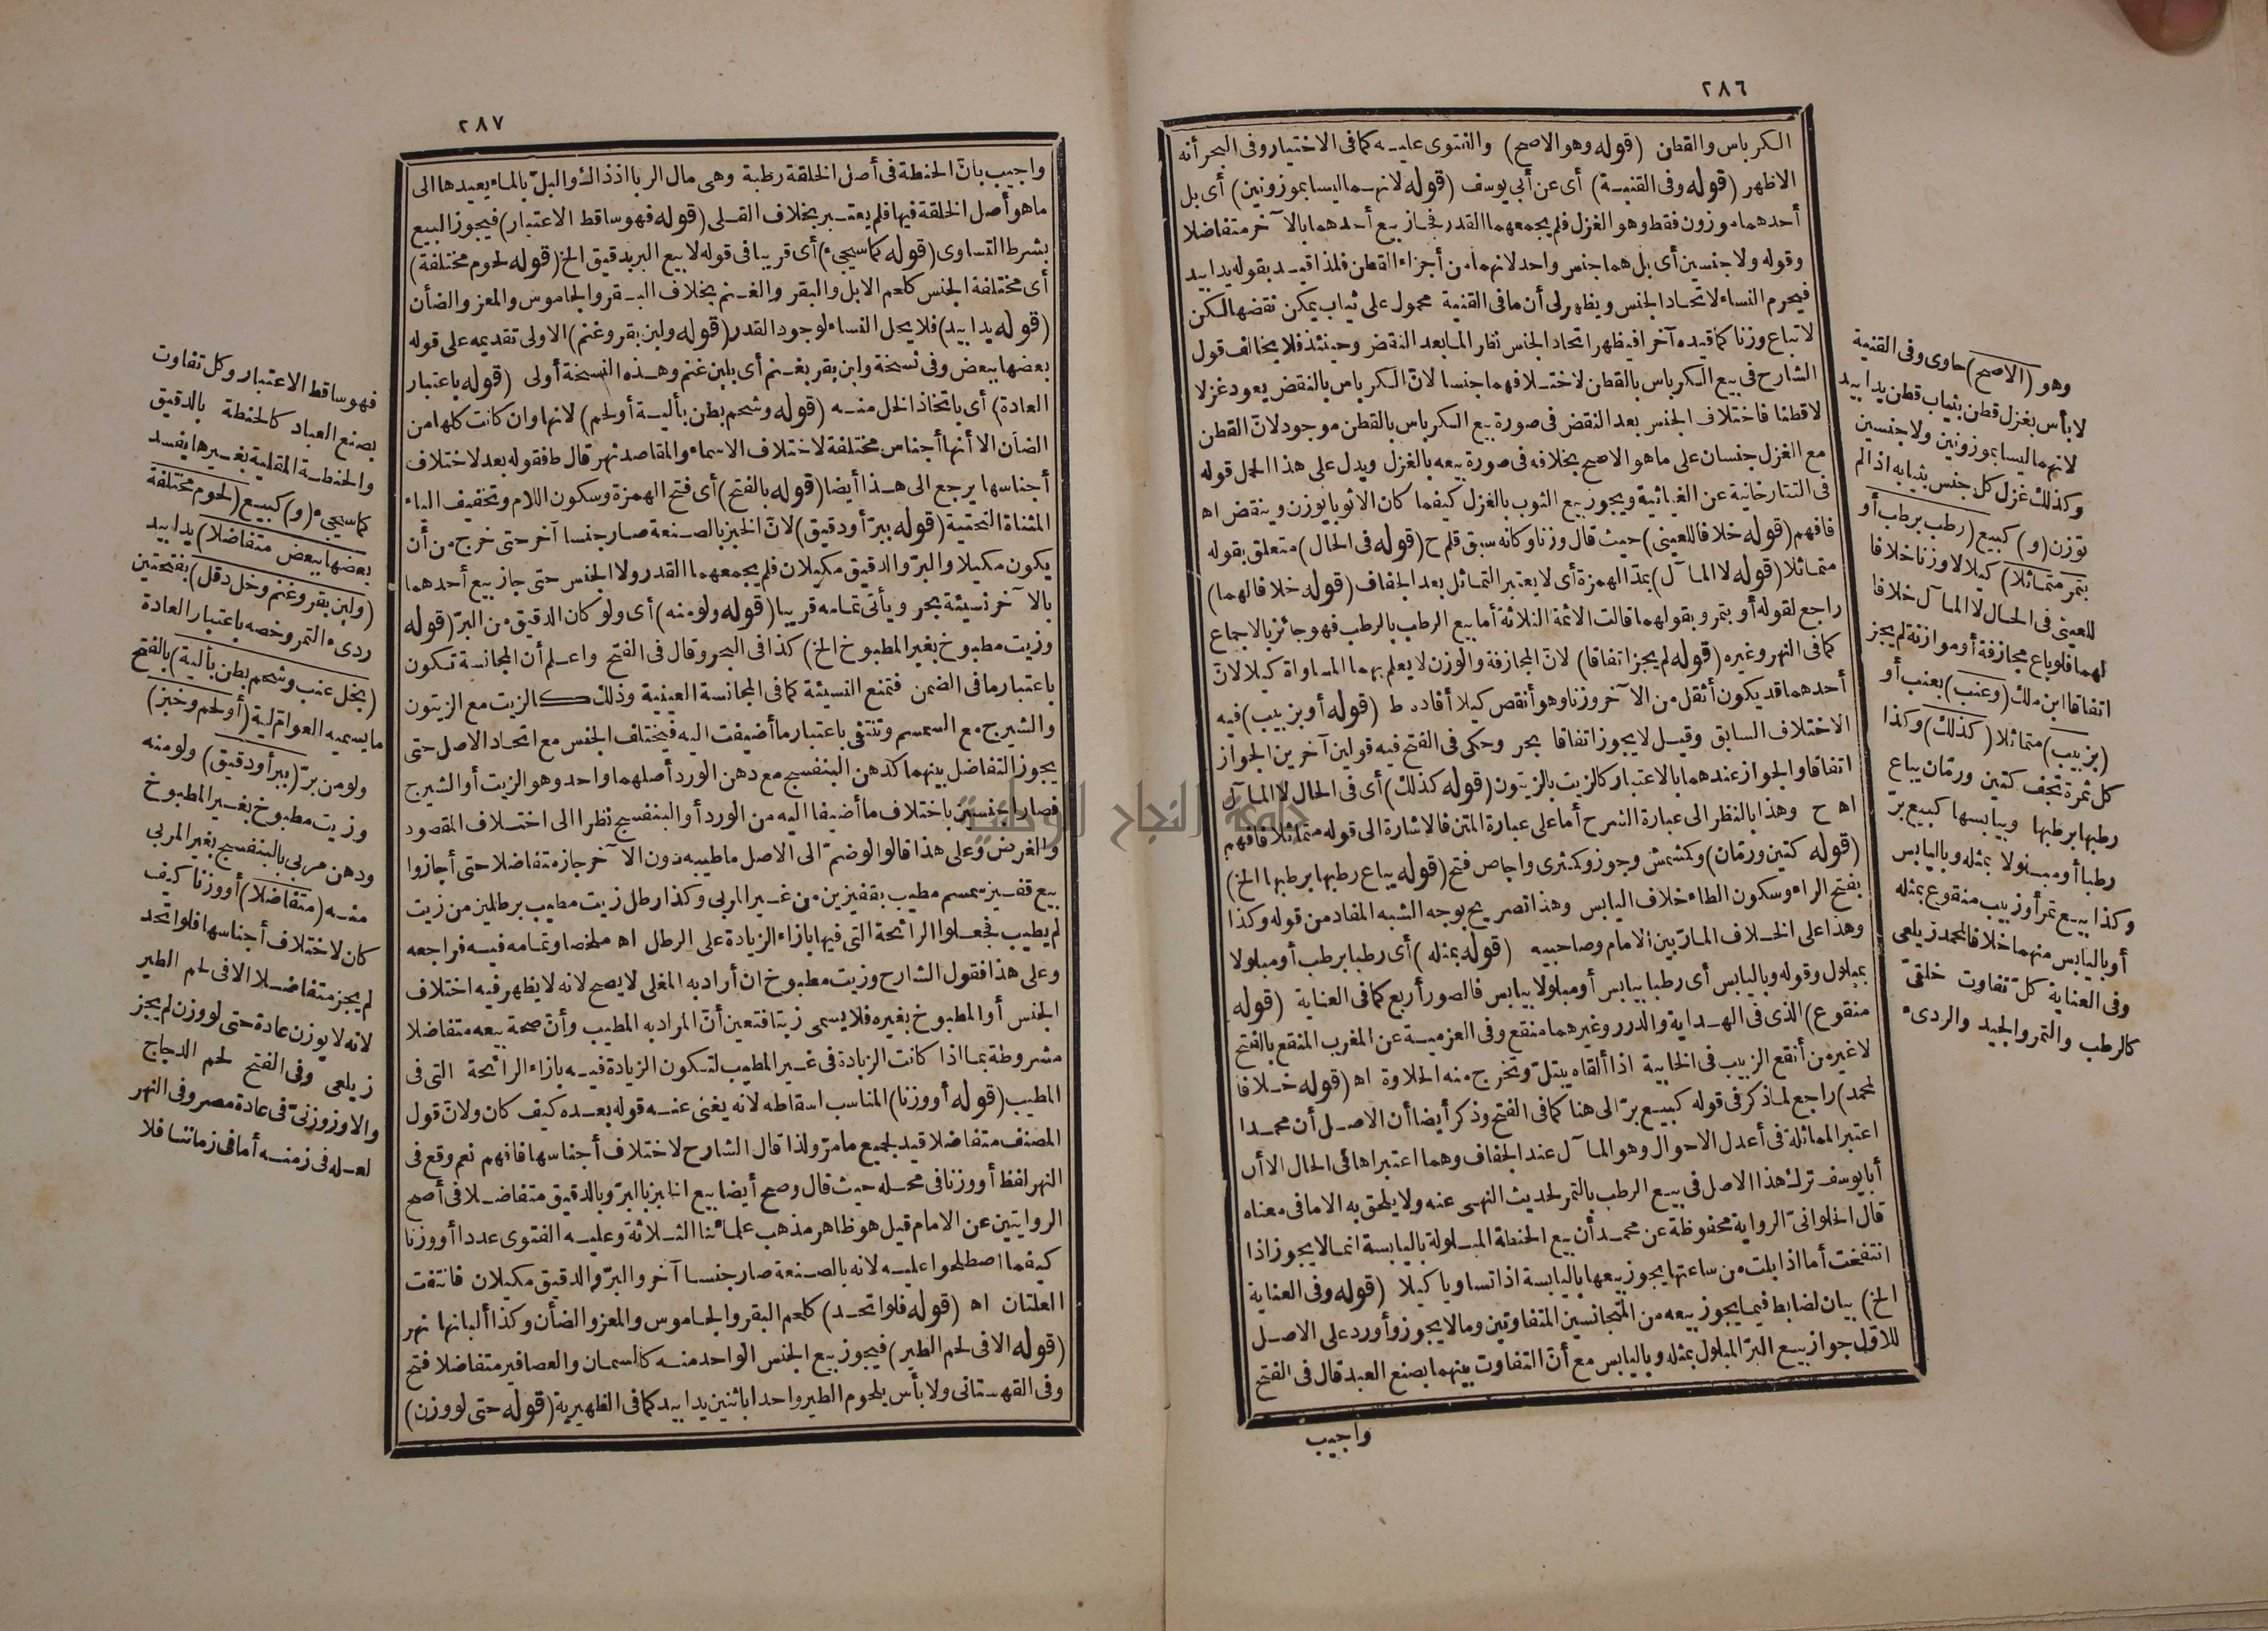 ٢٨٦
الكرباس والقطن (قوله وهو الاصح) والفتوى عليه كما فى الاختيار وفى البحر أنه
الاظهر (قوله وفى القنية) أى عن أبى يوسف (قوله لانهما ليسا بموزونين) أى بل
أحدهما موزون فقط وهو الغزل فلم يجمعهما القدر فجاز بيع أحدهما بالآخر متفاضلا
وقوله ولا جنسين أى بل هما جنس واحد لانهما من أجزاء القطن فلذا قيد بقوله يدا بيد
فيحرم النساء لاتحاد الجنس ويظهر لى أن ما فى القنية محمول على ثياب يمكن نقضها لكن
لا تباع وزنا كما قيده آخرا فيظهر اتحاد الجنس نظرا لما بعد النقض وحينئذ فلا يخالف قول
الشارح فى بيع الكرباس بالقطن لاختلافهما جنسا لانّ الكرباس بالنقض يعود غزلا
لا قطنا فاختلاف الجنس بعد النقض فى صورة بيع الكرباس بالقطن موجود لانّ القطن
مع الغزل جنسان على ما هو الاصح بخلافه فى صورة بيعه بالغزل ويدل على هذا الحمل قوله
فى التتارخانية عن الغياثية ويجوز بيع الثوب بالغزل كيفما كان الا ثوبا يوزن وينقض اه
فافهم (قوله خلافا للعينى) حيث قال وزنا وكانه سبق قلم ح (قوله فى الحال) متعلق بقوله
متماثلا (قوله لا المآل) بمدّ الهمزة أى لا يعتبر التماثل بعد الجفاف (قوله خلافا لهما)
راجع لقوله أو بتمر وبقولهما قالت الائمة الثلاثة أما بيع الرطب بالرطب فهو جائز بالاجماع
كما فى النهر وغيره (قوله لم يجز اتفاقا) لانّ المجازفة والوزن لا يعلم بهما المساواة كيلا لانّ
أحدهما قد يكون أثقل من الآخر وزنا وهو أنقص كيلا أفاده ط (قوله أو بزبيب) فيه
الاختلاف السابق وقيل لا يجوز اتفاقا بحر وحكى فى الفتح فيه قولين آخرين الجواز
اتفاقا والجواز عندهما بالاعتبار كالزيت بالزيتون (قوله كذلك) أى فى الحال لا المآل
اه ح وهذا بالنظر الى عبارة الشرح أما على عبارة المتن فالاشارة الى قوله متماثلا فافهم
(قوله كتين ورمّان) وكمشمش وجوز وكمثرى واجاص فتح (قوله يباع رطبها برطبها الخ)
بفتح الراء وسكون الطاء خلاف اليابس وهذا تصريح بوجه الشبه المفاد من قوله وكذا
وهذا على الخلاف المارّ بين الامام وصاحبيه (قوله بمثله) أى رطبا برطب أو مبلولا
بمبلول وقوله وباليابس أى رطبا بيابس أو مبلولا بيابس فالصور أربع كما فى العناية (قوله
منقوع) الذى فى الهداية والدرر وغيرهما منقع وفى العزمية عن المغرب المنقع بالفتح
لا غير من أنقع الزبيب فى الخابية اذا ألقاه يبتلّ وتخرج منه الحلاوة اه (قوله خلافا
لمحمد) راجع لما ذكر فى قوله كبيع برّ الى هنا كما فى الفتح وذكر أيضا أن الاصل أن محمدا
اعتبر المماثلة فى أعدل الاحوال وهو المآل عند الجفاف وهما اعتبراها فى الحال الا أن
أبا يوسف ترك هذا الاصل فى بيع الرطب بالتمر لحديث النهى عنه ولا يلحق به الا ما فى معناه
قال الحلوانىّ الرواية محفوظة عن محمد أن بيع الحنطة المبلولة باليابسة انما لا يجوز اذا
انتفخت أما اذا بلت من ساعتها يجوز بيعها باليابسة اذا تساويا كيلا (قوله وفى العناية
الخ) بيان لضابط فيما يجوز بيعه من المتجانسين المتفاوتين وما لا يجوز وأورد على الاصل
للاوّل جواز بيع البرّ المبلول بمثله وباليابس مع أنّ التفاوت بينهما بصنع العبد قال فى الفتح
واجيب
وهو (الاصح) حاوى وفى القنية
لا بأس بغزل قطن بثياب قطن يدا بيد
لانهما ليسا بموزونين ولا جنسين
وكذلك غزل كل جنس بثيابه اذا لم
توزن (و) كبيع (رطب برطب أو
بتمر متماثلا) كيلا لا وزنا خلافا
للعينى فى الحال لا المآل خلافا
لهما فلو باع مجازفة أو موازنة لم يجز
اتفاقا ابن ملك (وعنب) بعنب أو
(بزبيب) متماثلا (كذلك) وكذا
كل ثمرة تجف كتين ورمّان يباع
رطبها برطبها وبيابسها كبيع برّ
رطبا أو مبلولا بمثله وباليابس
وكذا بيع تمر أو زبيب منقوع بمثله
أو باليابس منهما خلافا لمحمد زيلعى
وفى العناية كلّ تفاوت خلقىّ
كالرطب والتمر والجيد والردىء
٢٨٧
واجيب بانّ الحنطة فى أصل الخلقة رطبة وهى مال الربا اذ ذاك والبلّ بالماء يعيدها الى
ما هو أصل الخلقة فيها فلم يعتبر بخلاف القلى (قوله فهو ساقط الاعتبار) فيجوز البيع
بشرط التساوى (قوله كما سيجىء) أى قريبا فى قوله لا بيع البر بدقيق الخ (قوله لحوم مختلفة)
أى مختلفة الجنس كلحم الابل والبقر والغنم بخلاف البقر والجاموس والمعز والضأن
(قوله يدا بيد) فلا يحل النساء لوجود القدر (قوله ولبن بقر وغنم) الاولى تقديمه على قوله
بعضها ببعض وفى نسخة ولبن بقر بغنم أى بلبن غنم وهذه النسخة أولى (قوله باعتبار
العادة) أى باتخاذ الخل منه (قوله وشحم بطن بألية أو لحم) لانها وان كانت كلها من
الضأن الا أنها أجناس مختلفة لاختلاف الاسماء والمقاصد نهر قال ط فقوله بعد لاختلاف
أجناسها يرجع الى هذا أيضا (قوله بالفتح) أى فتح الهمزة وسكون اللام وتخفيف الياء
المثناة التحتية (قوله ببرّ أو دقيق) لانّ الخبز بالصنعة صار جنسا آخر حتى خرج من أن
يكون مكيلا والبرّ والدقيق مكيلان فلم يجمعهما القدر ولا الجنس حتى جاز بيع أحدهما
بالآخر نسيئة بحر ويأتى تمامه قريبا (قوله ولو منه) أى ولو كان الدقيق من البرّ (قوله
وزيت مطبوخ بغير المطبوخ الخ) كذا فى البحر وقال فى الفتح واعلم أن المجانسة تكون
باعتبار ما فى الضمن فتمنع النسيئة كما فى المجانسة العينية وذلك كالزيت مع الزيتون
والشيرج مع السمسم وتنتفى باعتبار ما أضيفت اليه فيختلف الجنس مع اتحاد الاصل حتى
يجوز التفاضل بينهما كدهن البنفسج مع دهن الورد أصلهما واحد وهو الزيت أو الشيرج
فصارا جنسين باختلاف ما أضيفا اليه من الورد أو البنفسج نظرا الى اختلاف المقصود
والغرض وعلى هذا قالوا لو ضمّ الى الاصل ما طيبه دون الآخر جاز متفاضلا حتى أجازوا
بيع قفيز سمسم مطيب بقفيزين من غير المربى وكذا رطل زيت مطيب برطلين من زيت
لم يطيب فجعلوا الرائحة التى فيها بازاء الزيادة على الرطل اه ملخصا وتمامه فيه فراجعه
وعلى هذا فقول الشارح وزيت مطبوخ ان أراد به المغلى لا يصح لانه لا يظهر فيه اختلاف
الجنس أو المطبوخ بغيره فلا يسمى زيتا فتعين أنّ المراد به المطيب وأنّ صحة بيعه متفاضلا
مشروطة بما اذا كانت الزيادة فى غير المطيب لتكون الزيادة فيه بازاء الرائحة التى فى
المطيب (قوله أو وزنا) المناسب اسقاطه لانه يغنى عنه قوله بعده كيف كان ولانّ قول
المصنف متفاضلا قيد لجميع ما مرّ ولذا قال الشارح لاختلاف أجناسها فافهم نعم وقع فى
النهر لفظ أو وزنا فى محله حيث قال وصح أيضا بيع الخبز بالبرّ وبالدقيق متفاضلا فى أصح
الروايتين عن الامام قيل هو ظاهر مذهب علمائنا الثلاثة وعليه الفتوى عددا أو وزنا
كيفما اصطلحوا عليه لانه بالصنعة صار جنسا آخر والبرّ والدقيق مكيلان فانتفت
العلتان اه (قوله فلو اتحد) كلحم البقر والجاموس والمعز والضأن وكذا ألبانها نهر
(قوله الا فى لحم الطير) فيجوز بيع الجنس الواحد منه كالسمان والعصافير متفاضلا فتح
وفى القهستانى ولا بأس بلحوم الطير واحدا باثنين يدا بيد كما فى الظهيرية (قوله حتى لو وزن)
فهو ساقط الاعتبار وكل تفاوت
بصنع العباد كالحنطة بالدقيق
والحنطة المقلية بغيرها يفسد
كما سيجىء (و) كبيع (لحوم مختلفة
بعضها ببعض متفاضلا) يدا بيد
(ولبن بقر وغنم وخل دقل) بفتحتين
ردىء التمر وخصه باعتبار العادة
(بخل عنب وشحم بطن بألية) بالفتح
ما يسميه العوام لية (أو لحم وخبز)
ولو من برّ (ببر أو دقيق) ولو منه
وزيت مطبوخ بغير المطبوخ
ودهن مربى بالبنفسج بغير المربى
منه (متفاضلا) أو وزنا كيف
كان لاختلاف أجناسها فلو اتحد
لم يجز متفاضلا الا فى لحم الطير
لانه لا يوزن عادة حتى لو وزن لم يجز
زيلعى وفى الفتح لحم الدجاج
والاوز وزنىّ فى عادة مصر وفى النهر
لعله فى زمنه أما فى زماننا فلا
جامعة النجاح الوطنية